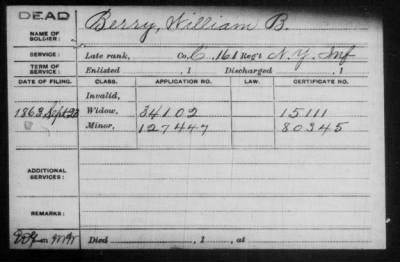 DEAD
NAME OF SOLDIER: Berry, William B.
SERVICE: Late rank, Co. C, 161 Reg't N.Y. Inf
TERM OF SERVICE: Enlisted , 1 Discharged , 1
DATE OF FILING. CLASS. APPLICATION NO. LAW. CERTIFICATE NO.
Invalid,
1863 Sept 23 Widow, 34102 15111
Minor, 127447 80345
ADDITIONAL SERVICES:
REMARKS:
Died , 1 , at